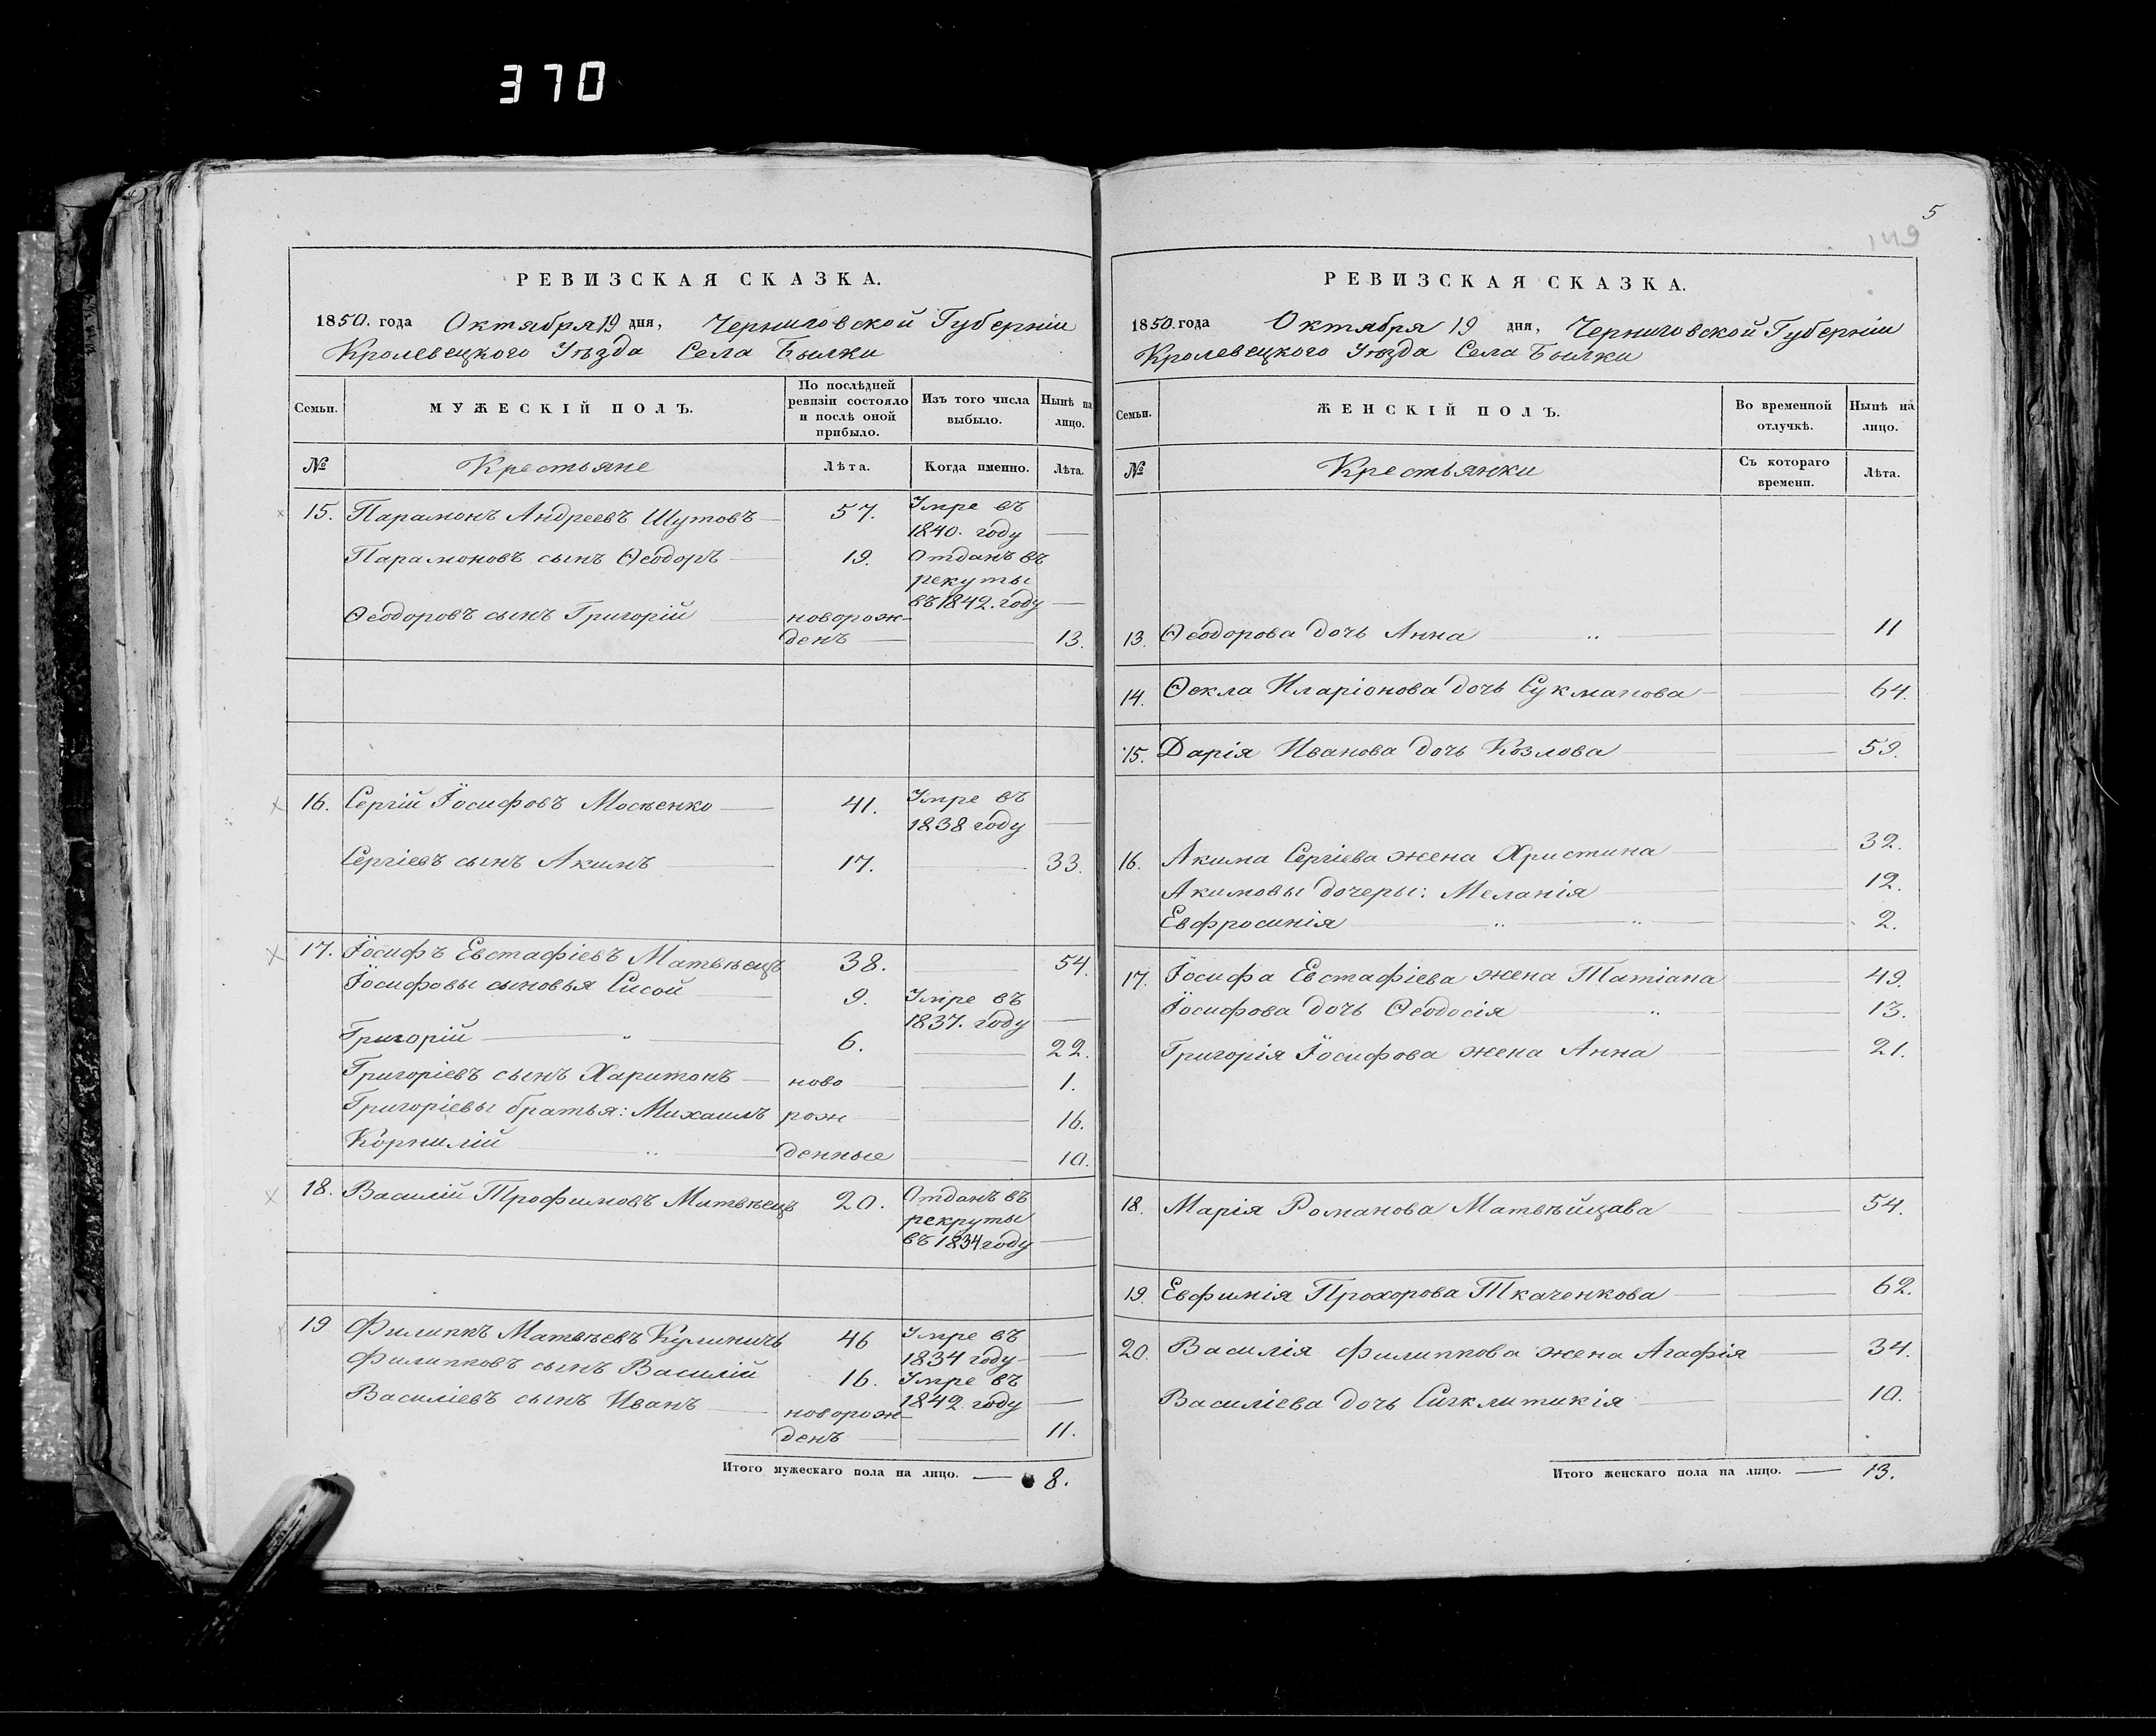 370
РЕВИЗСКАЯ СКАЗКА.
1850. года Октября 19 дня, Черниговской Губерніи
Кролевецкого Уѣзда Села Былки
Семьи. МУЖЕСКІЙ ПОЛЪ. По послѣдней ревизіи состояло и послѣ оной прибыло. Изъ того числа выбыло. Нынѣ на лицо.
№ Крестьяне Лѣта. Когда именно. Лѣта.
15. Парамонъ Андреевъ Шутовъ 57. Умре въ
1840. году
Парамоновъ сынъ Ѳеодоръ 19. Отданъ въ
рекуты
въ 1842. году
Ѳеодоровъ сынъ Григорій новорож-
денъ 13.
16. Сергій Іосифовъ Мосѣенко 41. Умре въ
1838 году
Сергіевъ сынъ Акимъ 17. 33.
17. Іосифъ Евстафіевъ Матвѣецъ 38. 54.
Іосифовы сыновья Сисой 9. Умре въ
1837. году
Григорій " 6. 22.
Григоріевъ сынъ Харитонъ ново 1.
Григоріевы братья: Михаилъ рож 16.
Корнилій " денные 10.
18. Василій Трофимовъ Матвѣецъ 20. Отданъ въ
рекруты
въ 1834 году
19 Филипъ Матвѣевъ Кулиничъ 46 Умре въ
1834 году
Филипповъ сынъ Василій 16. Умре въ
1842 году
Василіевъ сынъ Иванъ новорож-
денъ 11.
Итого мужескаго пола на лицо. 8.
5
149
РЕВИЗСКАЯ СКАЗКА.
1850. года Октября 19 дня, Черниговской Губерніи
Кролевецкого Уѣзда Села Былки
Семьи. ЖЕНСКІЙ ПОЛЪ. Во временной отлучкѣ. Нынѣ на лицо.
№ Крестьянки Съ котораго времени. Лѣта.
13. Ѳеодорова дочь Анна " 11
14. Ѳекла Иларіонова дочь Сукманова 64.
15. Дарія Иванова дочь Козлова 59.
16. Акима Сергіева жена Христина 32.
Акимовы дочеры: Меланія 12.
Евфросинія " " 2.
17. Іосифа Евстафіева жена Татіана 49.
Іосифова дочь Ѳеодосія " 13.
Григорія Іосифова жена Анна 21.
18. Марія Романова Матвѣйцава 54.
19. Евфимія Прохорова Ткаченкова 62.
20. Василія Филиппова жена Агафія 34.
Василіева дочь Сигклитикія 10.
Итого женскаго пола на лицо. 13.